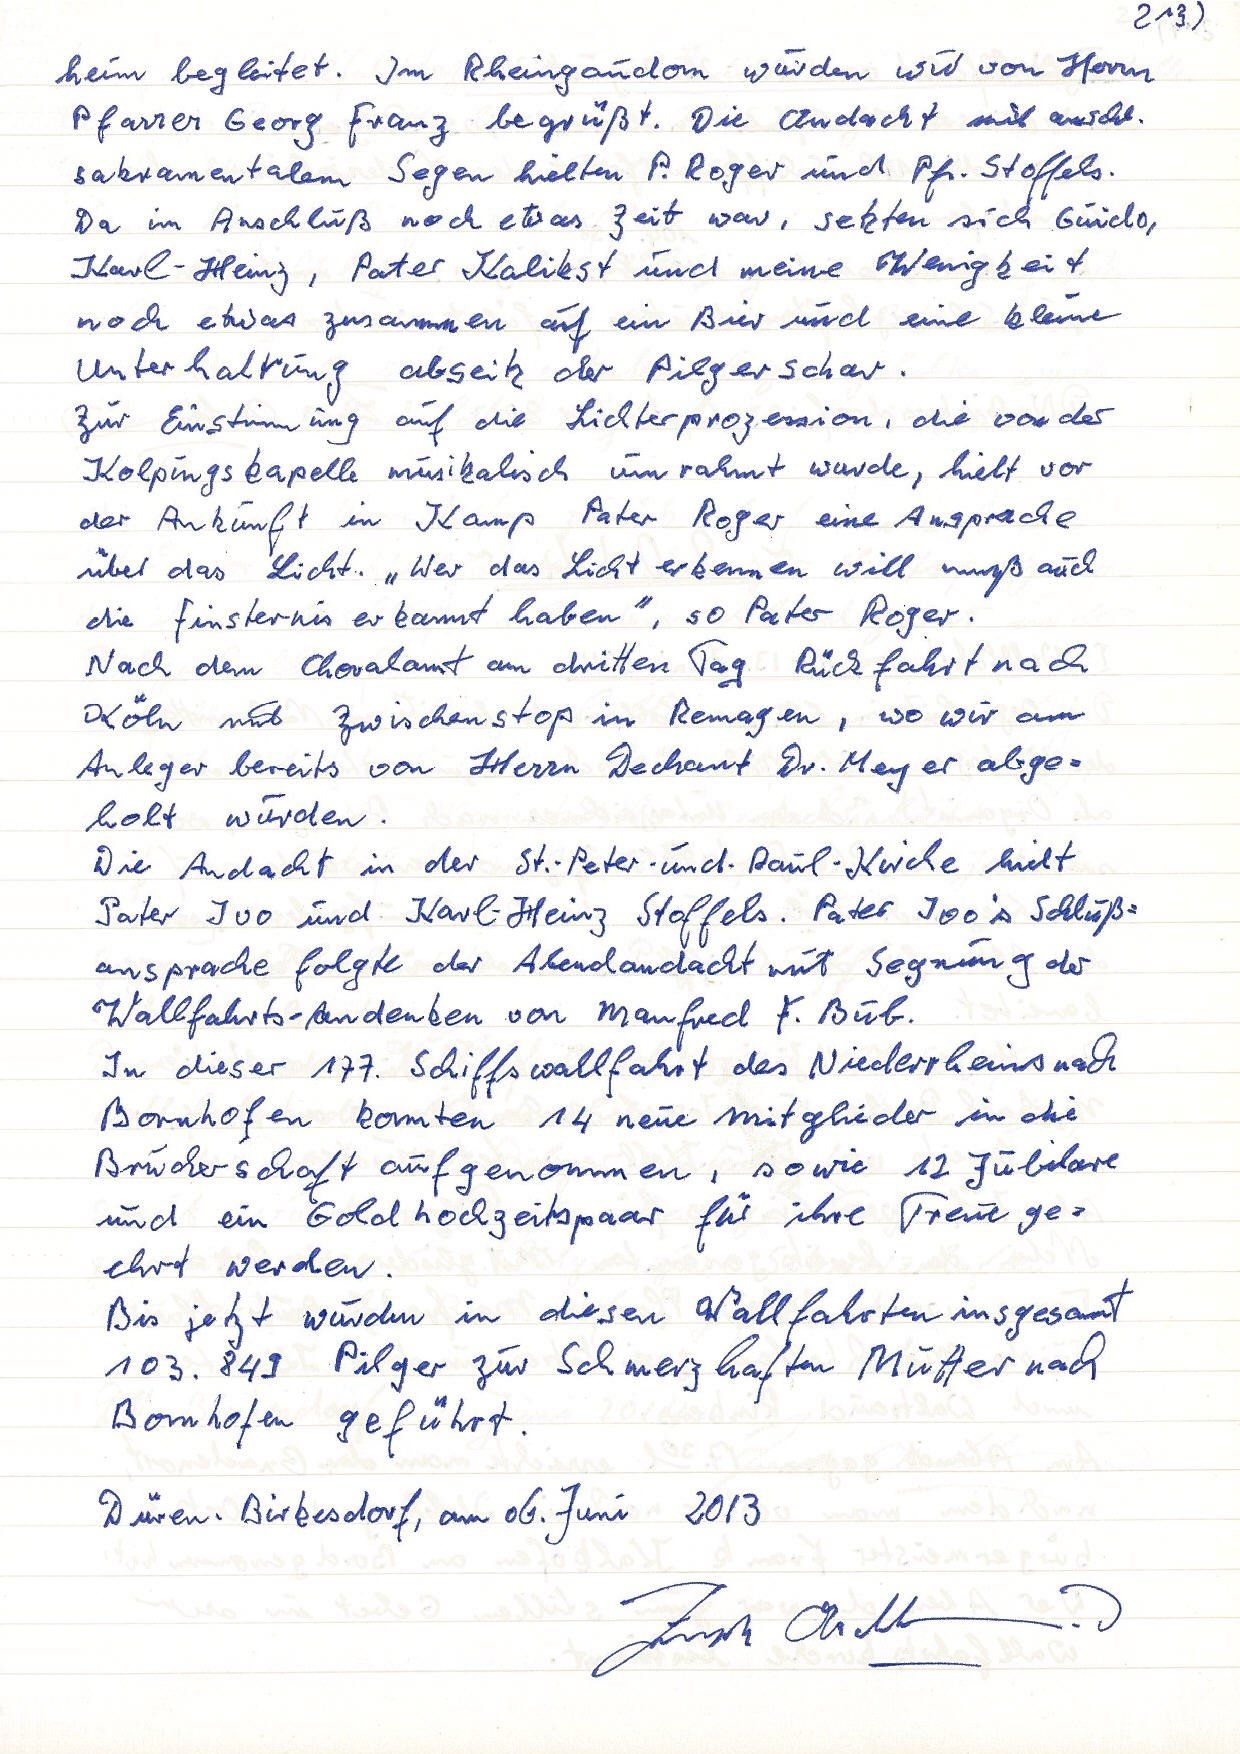 213)
heim begleitet. Im Rheingaudom wurden wir von Herrn
Pfarrer Georg Franz begrüßt. Die Andacht mit anschl.
sakramentalem Segen hielten P. Roger und Pfr. Stoffels.
Da im Anschluß noch etwas Zeit war, setzten sich Guido,
Karl-Heinz, Pater Kalikst und meine Wenigkeit
noch etwas zusammen auf ein Bier und eine kleine
Unterhaltung abseits der Pilgerschar.
Zur Einstimmung auf die Lichterprozession, die von der
Kolpingskapelle musikalisch umrahmt wurde, hielt vor
der Ankunft in Kamp Pater Roger eine Ansprache
über das Licht. „Wer das Licht erkennen will muß auch
die Finsternis erkannt haben", so Pater Roger.
Nach dem Choralamt am dritten Tag Rückfahrt nach
Köln mit Zwischenstop in Remagen, wo wir am
Anleger bereits von Herrn Dechant Dr. Meyer abge=
holt wurden.
Die Andacht in der St.-Peter-und-Paul-Kirche hielt
Pater Ivo und Karl-Heinz Stoffels. Pater Ivo's Schluß=
ansprache folgte der Abendandacht mit Segnung der
Wallfahrts-Andenken von Manfred F. Bub.
In dieser 177. Schiffswallfahrt des Niederrheins nach
Bornhofen konnten 14 neue Mitglieder in die
Bruderschaft aufgenommen, sowie 12 Jubilare
und ein Goldhochzeitspaar für ihre Treue ge=
ehrt werden.
Bis jetzt wurden in diesen Wallfahrten insgesamt
103.849 Pilger zur Schmerzhaften Mutter nach
Bornhofen geführt.
Düren-Birkesdorf, am 06. Juni 2013